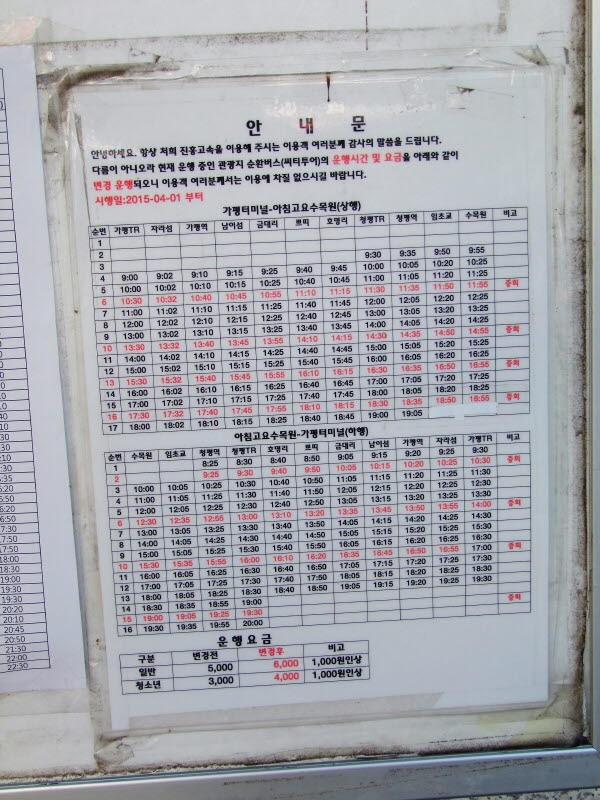 안 내 문
안녕하세요. 항상 저희 진흥고속을 이용해 주시는 이용객 여러분께 감사의 말씀을 드립니다.
다름이 아니오라 현재 운행 중인 관광지 순환버스(씨티투어)의 운행시간 및 요금을 아래와 같이
변경 운행되오니 이용객 여러분께서는 이용에 차질 없으시길 바랍니다.
시행일:2015-04-01 부터
가평터미널-아침고요수목원(상행)
순번 가평TR 자라섬 가평역 남이섬 금대리 쁘띠 호명리 청평TR 청평역 임초교 수목원 비고
1
2
9:30 9:35 9:50 9:55
4 9:00 9:02 9:10 9:15 9:25 9:40 9:45 10:00 10:05 10:20 10:25
5 10:00 10:02 10:10 10:15 10:25 10:40 10:45 11:00 11:05 11:20 11:25
6 10:30 10:32 10:40 10:45 10:55 11:10 11:15 11:30 11:35 11:50 11:55 증회
7 11:00 11:02 11:10 11:15 11:25 11:40 11:45 12:00 12:05 12:20 12:25
8 12:00 12:02 12:10 12:15 12:25 12:40 12:45 13:00 13:05 13:20 13:25
9 13:00 13:02 13:10 13:15 13:25 13:40 13:45 14:00 14:05 14:20 14:25
10 13:30 13:32 13:40 13:45 13:55 14:10 14:15 14:30 14:35 14:50 14:55 증회
11 14:00 14:02 14:10 14:15 14:25 14:40 14:45 15:00 15:05 15:20 15:25
12 15:00 15:02 15:10 15:15 15:25 15:40 15:45 16:00 16:05 16:20 16:25
13 15:30 15:32 15:40 15:45 15:55 16:10 16:15 16:30 16:35 16:50 16:55 증회
14 16:00 16:02 16:10 16:15 16:25 16:40 16:45 17:00 17:05 17:20 17:25
15 17:00 17:02 17:10 17:15 17:25 17:40 17:45 18:00 18:05 18:20 18:25
16 17:30 17:32 17:40 17:45 17:55 18:10 18:15 18:30 18:35 18:50 18:55 증회
17 18:00 18:02 18:10 18:15 18:25 18:40 18:45 19:00 19:05
아침고요수목원-가평터미널(하행)
순번 수목원 임초교 청평역 청평TR 호명리 쁘띠 금대리 남이섬 가평역 자라섬 가평TR 비고
1 8:25 8:30 8:40 8:50 9:05 9:15 9:20 9:25 9:30
2 9:25 9:30 9:40 9:50 10:05 10:15 10:20 10:25 10:30 증회
3 10:00 10:05 10:25 10:30 10:40 10:50 11:05 11:15 11:20 11:25 11:30
4 11:00 11:05 11:25 11:30 11:40 11:50 12:05 12:15 12:20 12:25 12:30
5 12:00 12:05 12:25 12:30 12:40 12:50 13:05 13:15 13:20 13:25 13:30
6 12:30 12:35 12:55 13:00 13:10 13:20 13:35 13:45 13:50 13:55 14:00 증회
7 13:00 13:05 13:25 13:30 13:40 13:50 14:05 14:15 14:20 14:25 14:30
8 14:00 14:05 14:25 14:30 14:40 14:50 15:05 15:15 15:20 15:25 15:30
9 15:00 15:05 15:25 15:30 15:40 15:50 16:05 16:15 16:20 16:25 16:30
10 15:30 15:35 15:55 16:00 16:10 16:20 16:35 16:45 16:50 16:55 17:00 증회
11 16:00 16:05 16:25 16:30 16:40 16:50 17:05 17:15 17:20 17:25 17:30
12 17:00 17:05 17:25 17:30 17:40 17:50 18:05 18:15 18:20 18:25 18:30
13 18:00 18:05 18:25 18:30 18:40 18:50 19:05 19:15 19:20 19:25 19:30
14 18:30 18:35 18:55 19:00
15 19:00 19:05 19:25 19:30 증회
16 19:30 19:35 19:55 20:00
운행요금
구분 변경전 변경후 비고
일반 5,000 6,000 1,000원인상
청소년 3,000 4,000 1,000원인상
18:00
18:30
19:00
19:30
20:10
20:45
20:50
21:30
22:00
22:30